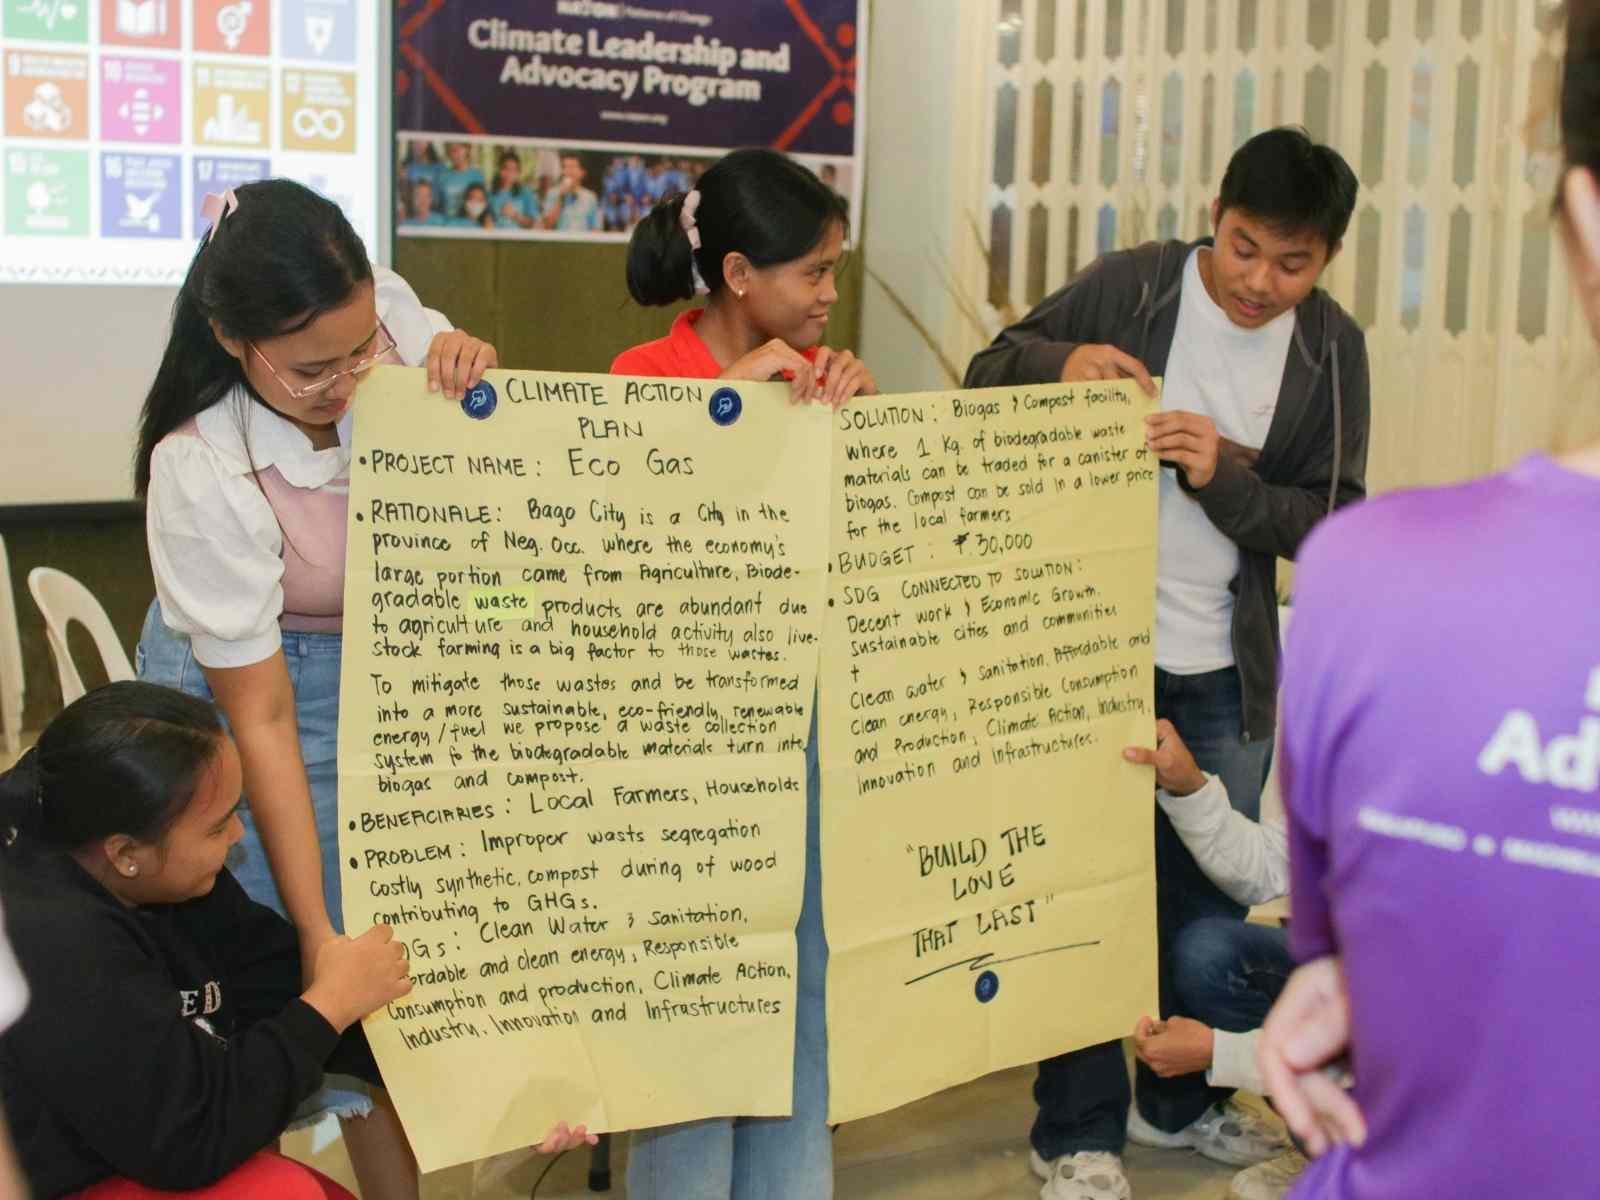 Climate Leadership and
Advocacy Program
9
10
11
12
15
16
17
CLIMATE ACTION
PLAN
• PROJECT NAME: Eco Gas
• RATIONALE: Bago City is a City in the
province of Neg. Occ. where the economy's
large portion came from Agriculture, Biode-
gradable waste products are abundant due
to agriculture and household activity also live-
stock farming is a big factor to those wastes.
To mitigate those wastes and be transformed
into a more sustainable, eco-friendly, renewable
energy/fuel we propose a waste collection
system to the biodegradable materials turn into
biogas and compost.
• BENEFICIARIES: Local Farmers, Households
• PROBLEM: Improper wasts segregation
costly synthetic, compost during of wood
contributing to GHGs.
DGs: Clean Water & sanitation,
ordable and clean energy, Responsible
Consumption and production, Climate Action,
Industry, Innovation and Infrastructures
SOLUTION: Biogas & Compost facility,
where 1 Kg. of biodegradable waste
materials can be traded for a canister of
biogas. Compost can be sold in a lower price
for the local farmers
• BUDGET: ₱.30,000
• SDG CONNECTED TO SOLUTION:
Decent work & Economic Growth.
Sustainable cities and communities
+
Clean water & sanitation, Affordable and
Clean energy, Responsible Consumption
and Production, Climate Action, Industry,
Innovation and Infrastructures.
"BUILD THE
LOVE
THAT LAST"
Ad